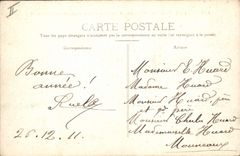 II
CARTE POSTALE
Tous les pays étrangers n'acceptent pas la correspondance au recto (se renseigner à la poste)
Correspondance
Adresse
Bonne
année!
26.12.11.
Monsieur E. Huard
Madame Huard
Monsieur Huard père
et
Monsieur Charles Huard
Mademoiselle Huard